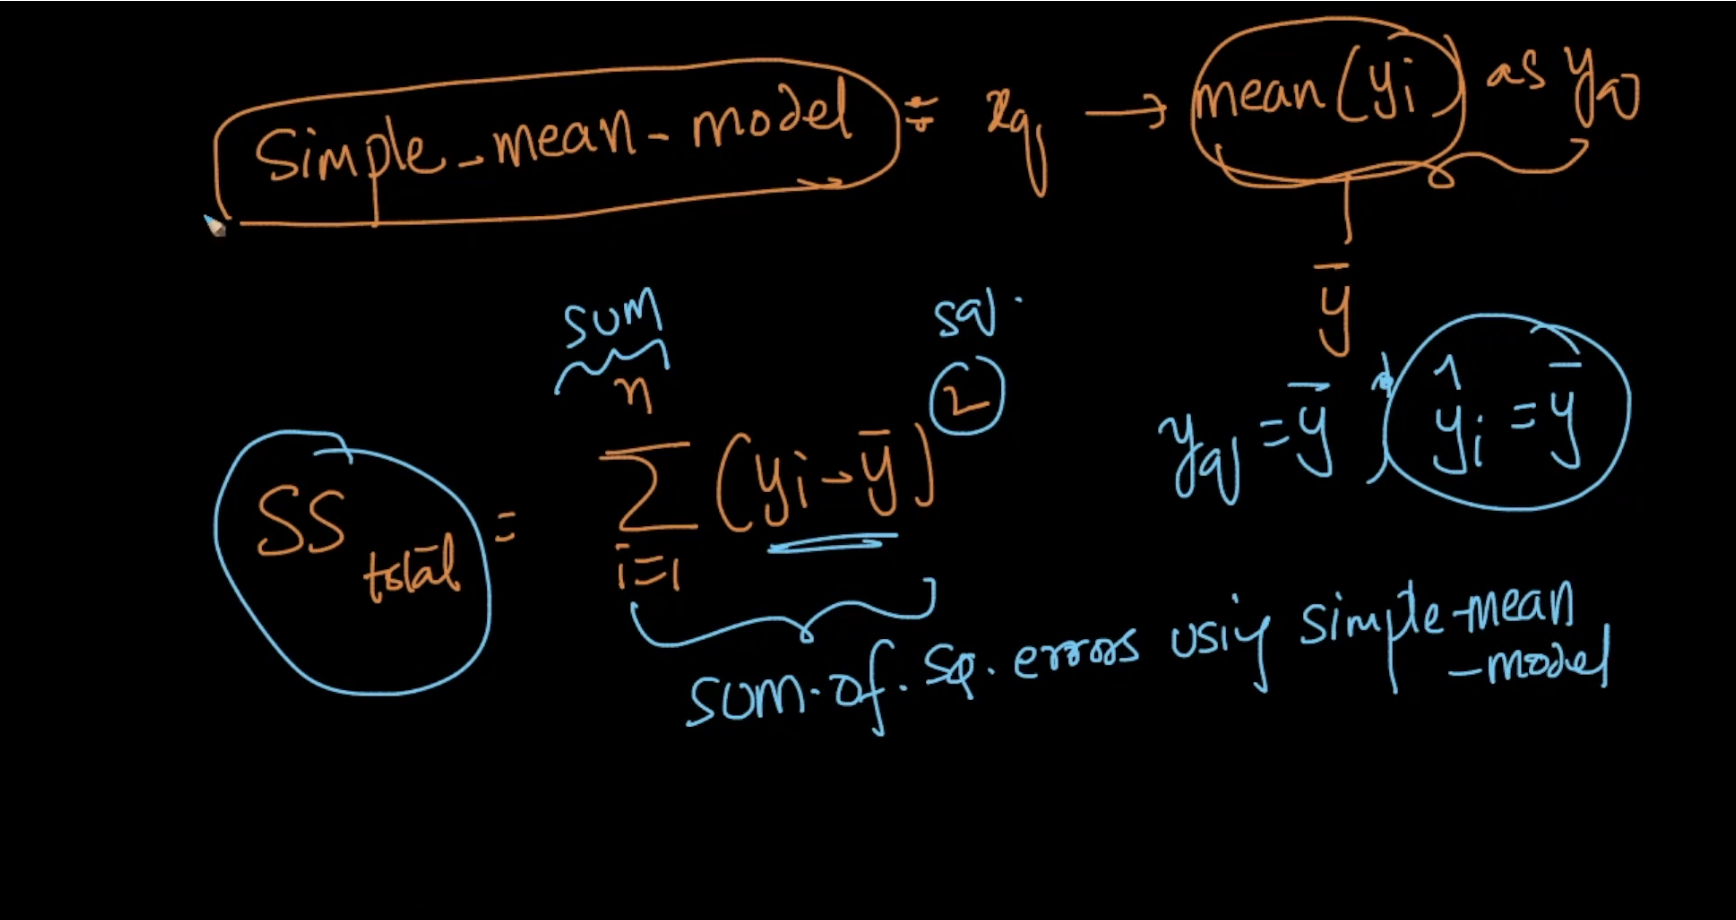 Simple-mean-model ÷ xq → mean(yi) as yq
ȳ
sum
sq.
SS total = n Σ i=1 (yi-ȳ)²
yq = ȳ, ŷi = ȳ
sum-of-sq. errors using simple-mean
-model